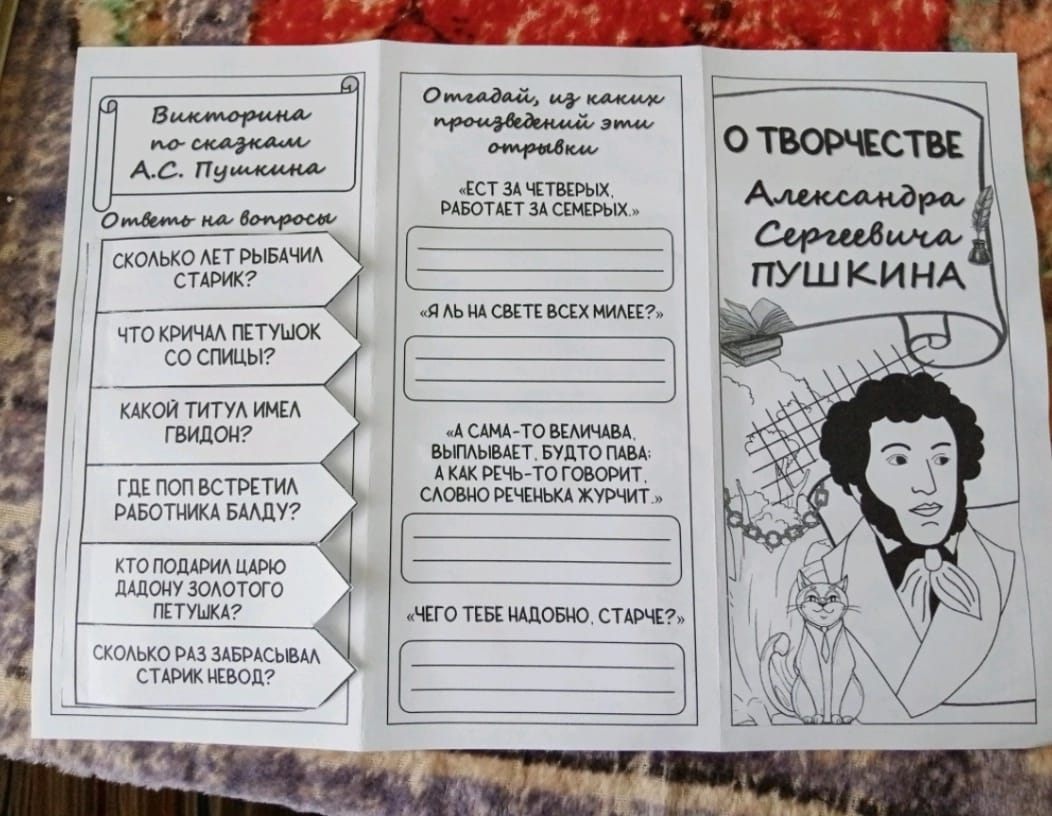 Викторина
по сказкам
А.С. Пушкина
Ответь на вопросы
СКОЛЬКО ЛЕТ РЫБАЧИЛ
СТАРИК?
ЧТО КРИЧАЛ ПЕТУШОК
СО СПИЦЫ?
КАКОЙ ТИТУЛ ИМЕЛ
ГВИДОН?
ГДЕ ПОП ВСТРЕТИЛ
РАБОТНИКА БАЛДУ?
КТО ПОДАРИЛ ЦАРЮ
ДАДОНУ ЗОЛОТОГО
ПЕТУШКА?
СКОЛЬКО РАЗ ЗАБРАСЫВАЛ
СТАРИК НЕВОД?
Отгадай, из каких
произведений эти
отрывки
«ЕСТ ЗА ЧЕТВЕРЫХ,
РАБОТАЕТ ЗА СЕМЕРЫХ.»
«Я ЛЬ НА СВЕТЕ ВСЕХ МИЛЕЕ?»
«А САМА-ТО ВЕЛИЧАВА,
ВЫПЛЫВАЕТ, БУДТО ПАВА;
А КАК РЕЧЬ-ТО ГОВОРИТ,
СЛОВНО РЕЧЕНЬКА ЖУРЧИТ.»
«ЧЕГО ТЕБЕ НАДОБНО, СТАРЧЕ?»
О ТВОРЧЕСТВЕ
Александра
Сергеевича
ПУШКИНА